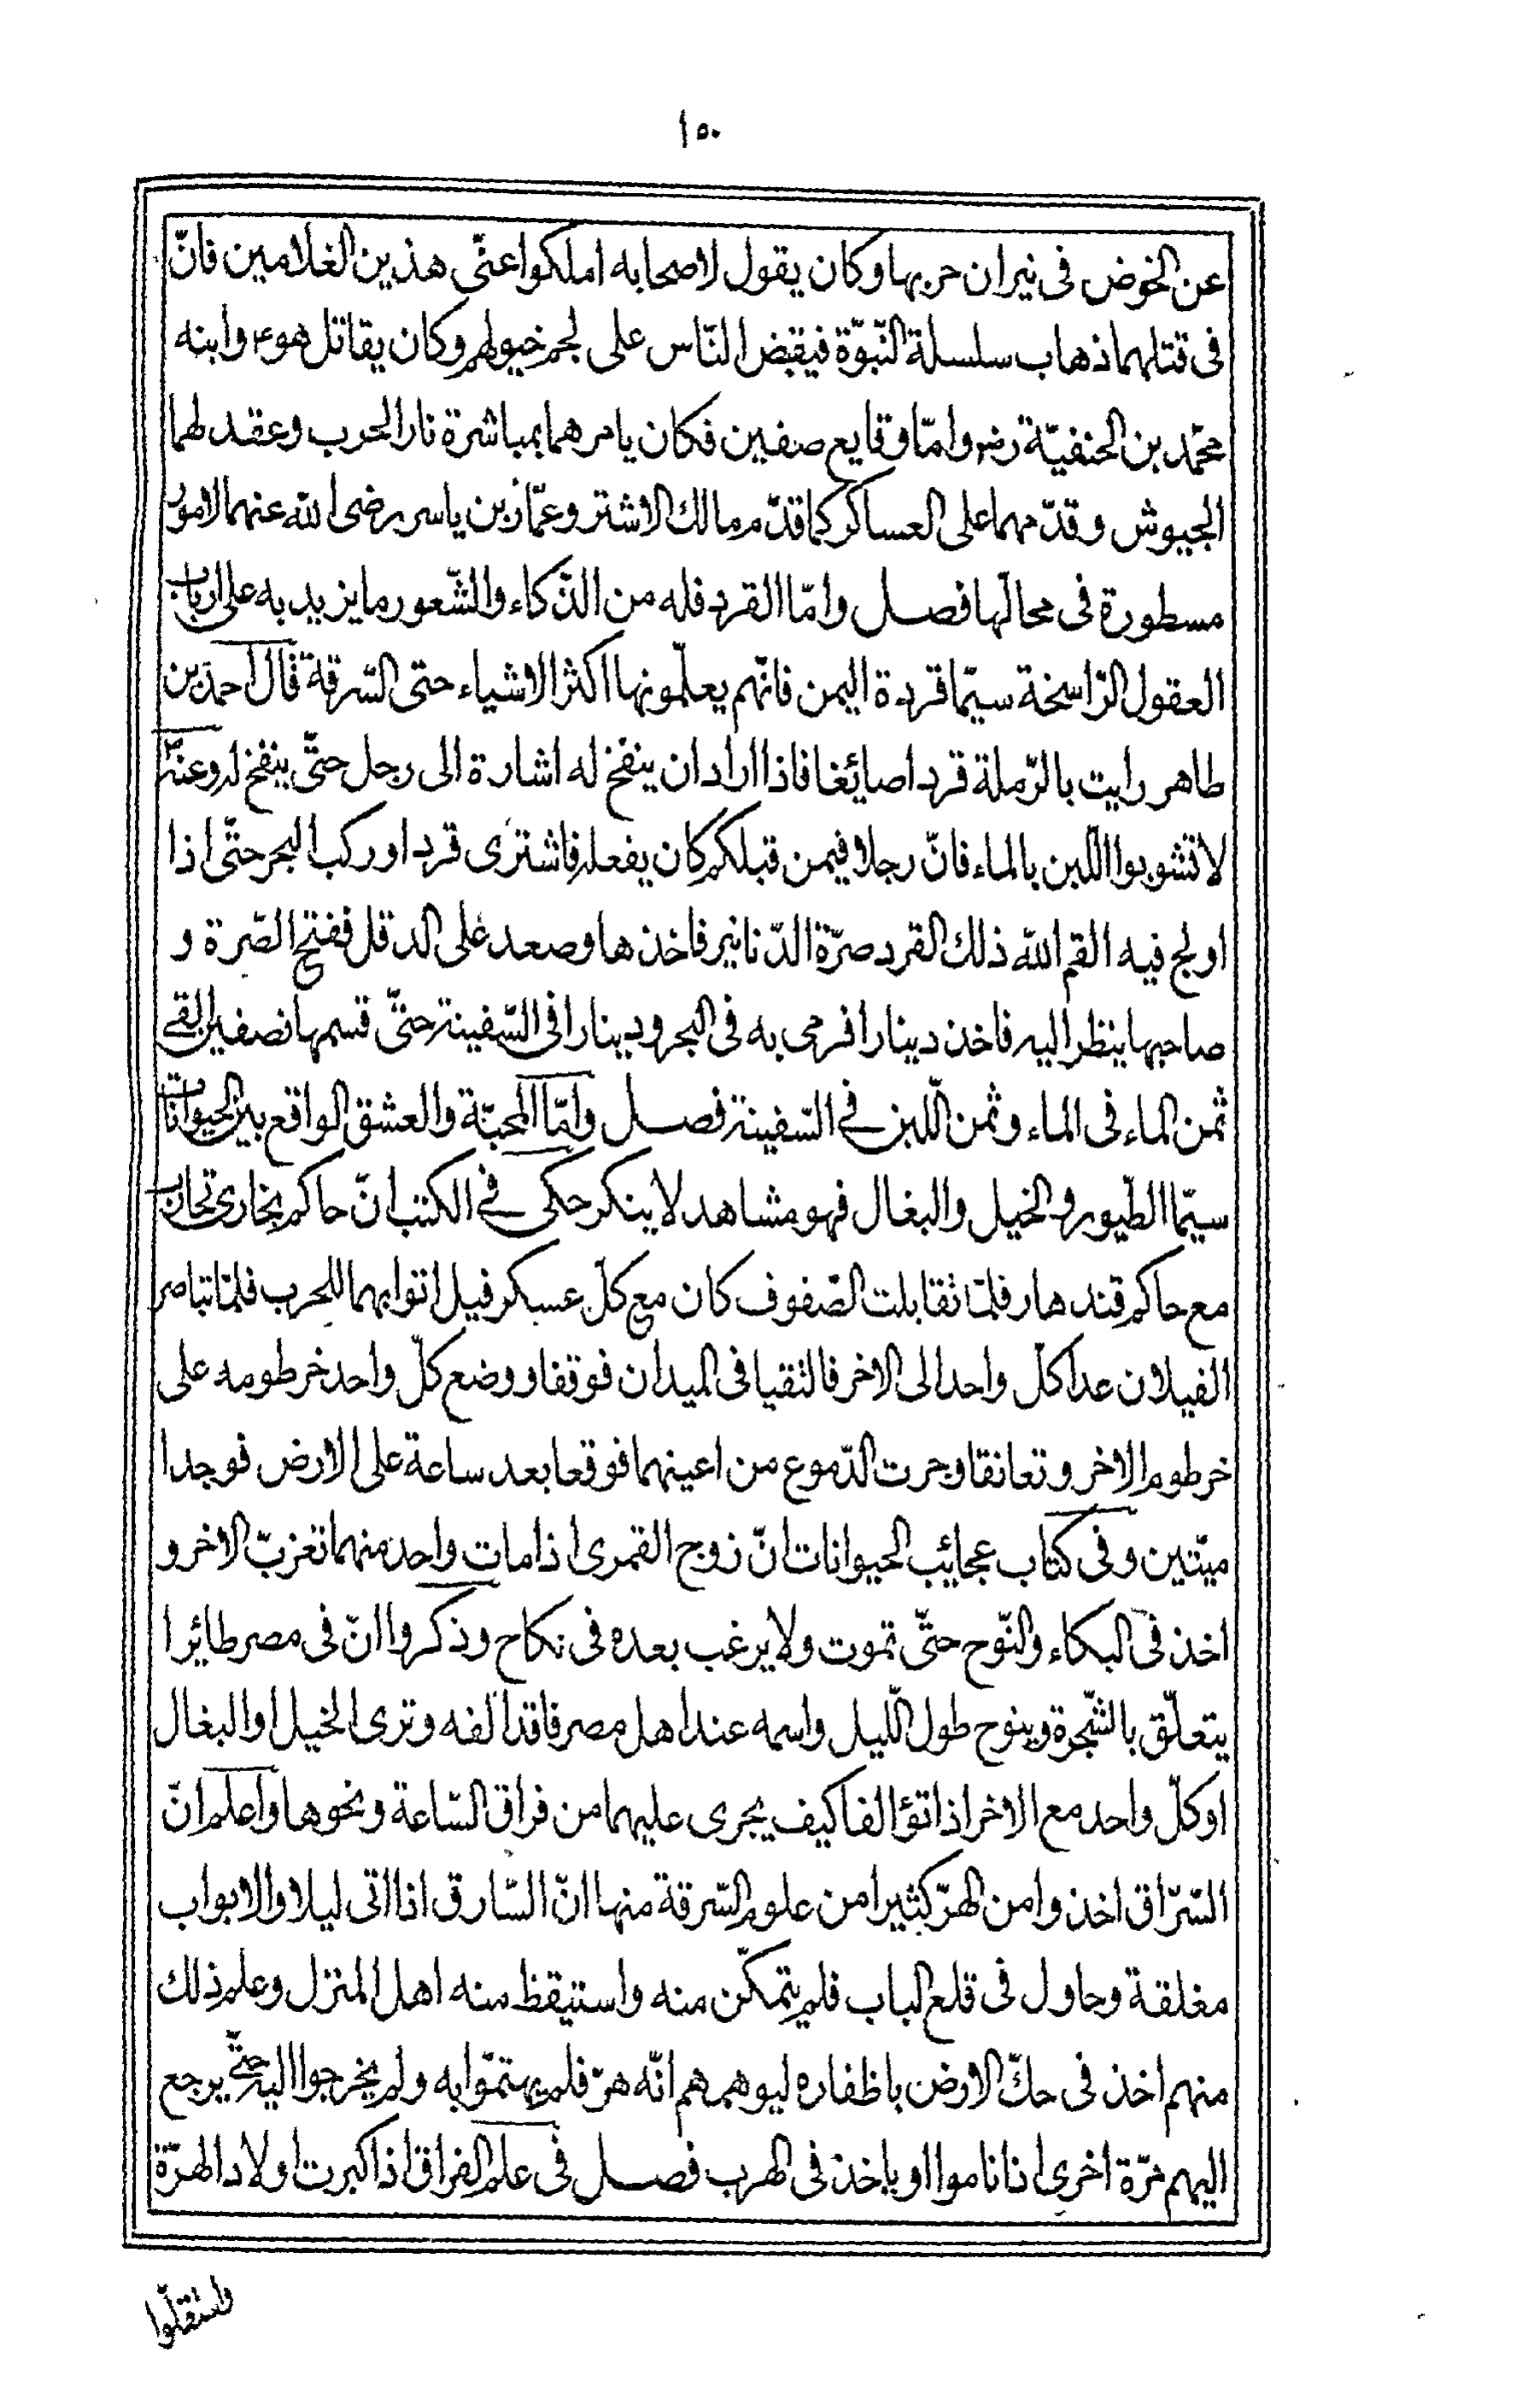 ١٥٠
عن الخوض فى نيران حربها وكان يقول لاصحابه املكوا عنّى هذين الغلامين فانّ
فى قتلهما ذهاب سلسلة النّبوّة فيقبض النّاس على لجم خيولهم وكان يقاتل هو ع وابنه
محمّد بن الحنفيّة رض وامّا وقايع صفين فكان يامرهما بمباشرة نار الحرب وعقد لهما
الجيوش وقدّمهما على العساكر كما قدّم مالك الاشتر وعمّار بن ياسر رضى الله عنهما لامور
مسطورة فى محالّها فصل وامّا القرد فله من الذّكاء والشّعور ما يزيد به على ارباب
العقول الرّاسخة سيّما قردة اليمن فانّهم يعلّمونها اكثر الاشياء حتى السّرقة قال احمد بن
طاهر رايت بالرّملة قردا صائغا فاذا اراد ان ينفخ له اشارة الى رجل حتّى ينفخ له وعنه ص
لا تشوبوا اللّبن بالماء فانّ رجلا فيمن قبلكم كان يفعله فاشترى قردا وركب البحر حتّى اذا
اولج فيه القم الله ذلك القرد صرّة الدّنانير فاخذها وصعد على الدقل ففتح الصّرة و
صاحبها ينظر اليه فاخذ دينارا فرمى به فى البحر ودينارا فى السّفينة حتّى قسمها نصفين القى
ثمن الماء فى الماء وثمن اللّبن فى السّفينة فصل وامّا المحبّة والعشق الواقع بين الحيوانات
سيّما الطّيور والخيل والبغال فهو مشاهد لا ينكر حكى فى الكتب انّ حاكم بخارى تحارب
مع حاكم قندهار فلمّا تقابلت الصّفوف كان مع كلّ عسكر فيل اتوا بهما للحرب فلمّا تباصر
الفيلان عدا كلّ واحد الى الاخر فالتقيا فى الميدان فوقفا ووضع كلّ واحد خرطومه على
خرطوم الاخر وتعانقا وجرت الدّموع من اعينهما فوقعا بعد ساعة على الارض فوجدا
ميّتين وفى كتاب عجائب الحيوانات انّ زوج القمرى اذا مات واحد منهما تعزبّ الاخر و
اخذ فى البكاء والنّوح حتّى تموت ولا يرغب بعده فى نكاح وذكروا انّ فى مصر طائرا
يتعلّق بالشّجرة وينوح طول اللّيل واسمه عند اهل مصر فاقد الفه وترى الخيل او البغال
او كلّ واحد مع الاخر اذا تؤالفا كيف يجرى عليهما من فراق السّاعة ونحوها واعلم انّ
السّرّاق اخذوا من الهرّ كثيرا من علوم السّرقة منها انّ السّارق اذا اتى ليلا والابواب
مغلقة وحاول فى قلع الباب فلم يتمكّن منه واستيقظ منه اهل المنزل وعلم ذلك
منهم اخذ فى حكّ الارض باظفاره ليوهمهم انّه هرّ فلم يهتمّوا به ولم يخرجوا اليه حتّى يرجع
اليهم مرّة اخرى اذا ناموا او ياخذ فى الهرب فصل فى علم الفراق اذا كبرت اولاد الهرّة
واستقلّوا